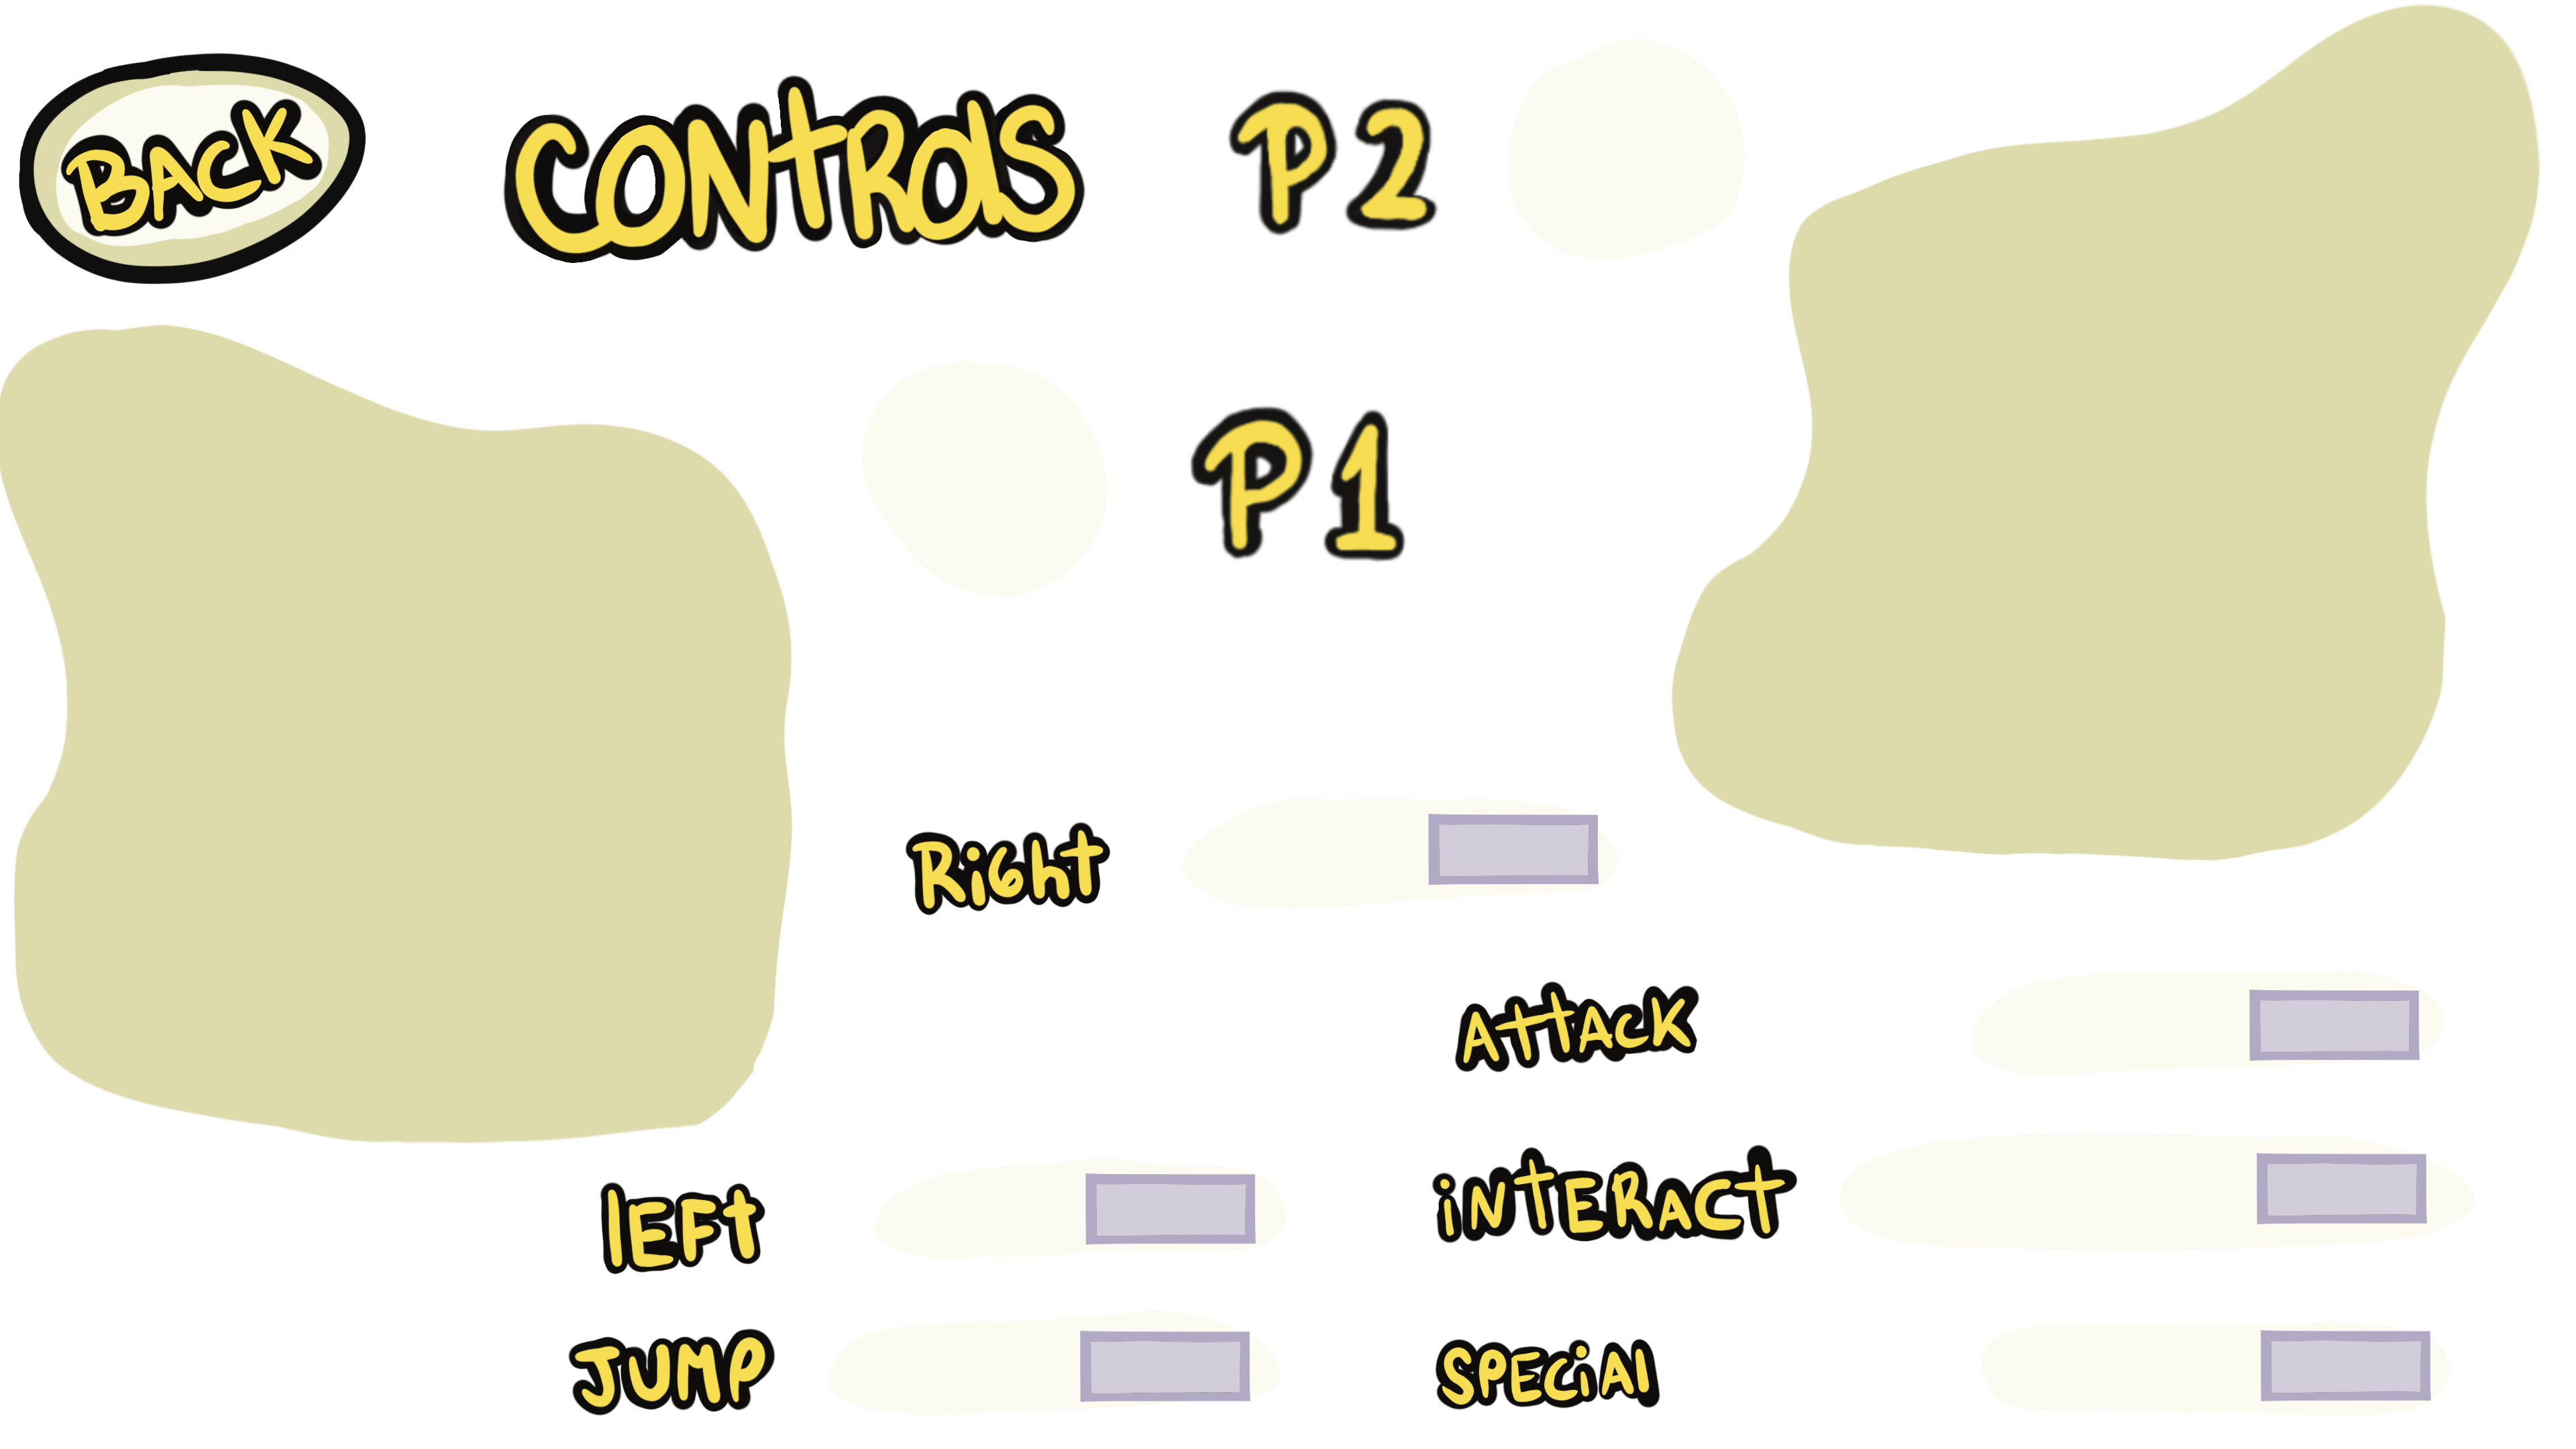 BACK
CONtROlS
P2
P1
RiGht
AttACK
lEFt
iNtERACt
JUMP
SPECiAl